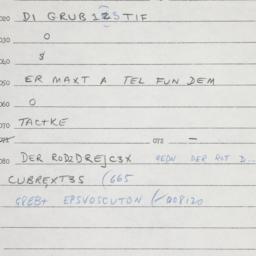 020 DI GRUB123TIF
030 O
040 $
050 ER MAXT A TEL FUN DEM
060 O
070 TACTKE
071 072 –
080 DER ROD2DREJC3X REDN DER ROT D...
CUBREXT3S (665
GREB+ EPSVOSCUTON